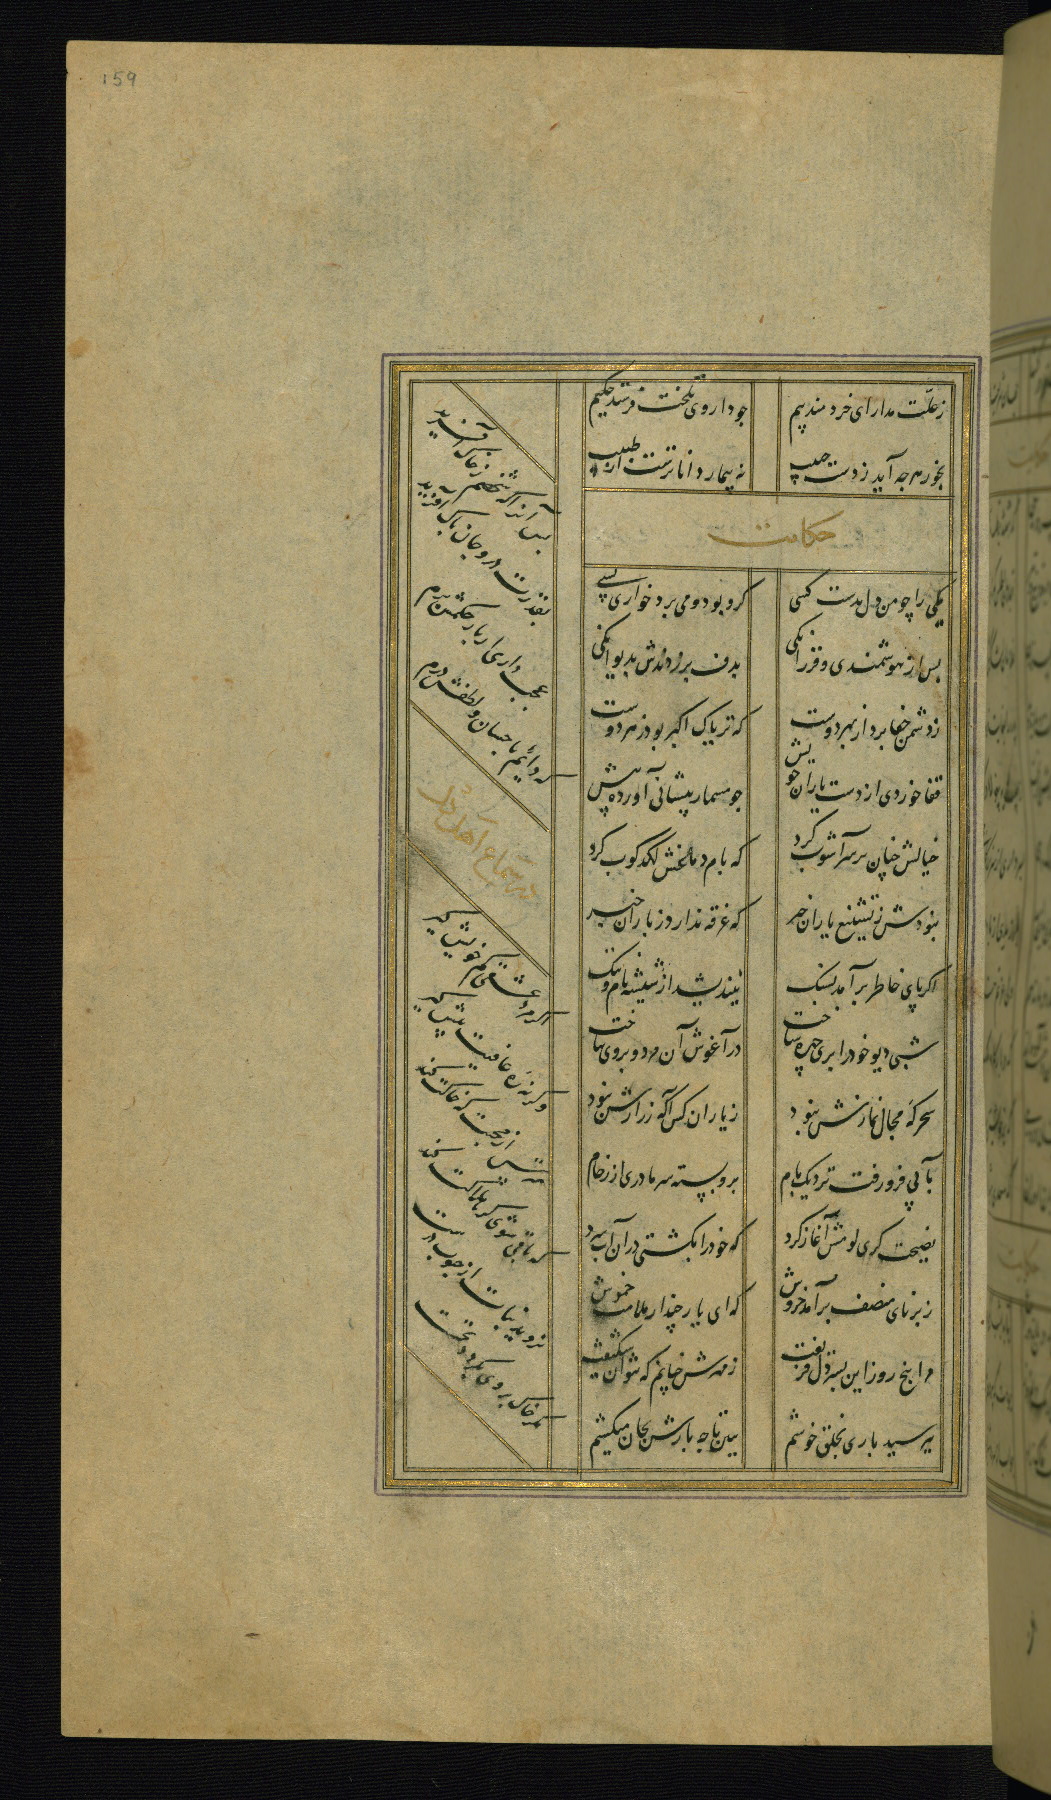 159
ز علّت مدارای خردمند بیم
چو داروی تلخت فرستد حکیم
بخور هرچه آید ز دست حبیب
نه بیمار داناترست از طبیب
حکایت
یکی را چو من دل بدست کسی
گرو بود و می برد خواری بسی
پس از هوشمندی و فرزانگی
بدف بر زدندش بدیوانگی
ز دشمن جفا بردی از بهر دوست
که تریاک اکبر بود زهر دوست
قفا خوردی از دست یاران خویش
چو مسمار پیشانی آورده پیش
خیالش چنان بر سر آشوب کرد
که بام دماغش لگدکوب کرد
نبودش ز تشنیع یاران خبر
که غرقه ندارد ز باران خبر
کرا پای خاطر برآمد بسنگ
نیندیشد از شیشه نام و ننگ
شبی دیو خود را پری چهره ساخت
در آغوش آن مرد و بروی بتاخت
سحرگه مجال نمازش نبود
ز یاران کس آگه ز رازش نبود
بآبی فرو رفت نزدیک بام
برو بسته سرما دری از رخام
نصیحت گری لومش آغاز کرد
که خود را بکشتی در آن آب سرد
ز برنای منصف برآمد خروش
که ای یار چند از ملامت خموش
مرا پنج روز این پسر دل فریفت
ز مهرش چنانم که نتوان شکیفت
نپرسید باری بخلق خوشم
ببین تا چه بارش بجان میکشم
پس آنرا که شخصم ز خاک آفرید
بقدرت درو جان پاک آفرید
عجب داری ار بار حکمش برم
که دائم باحسان و لطفش درم
در سماع اهل دل
اگر مرد عشقی کم خویش گیر
و گر نه ره عافیت پیش گیر
مترس از محبت که خاکت کند
که باقی شوی گر هلاکت کند
نروید نبات از حبوب درست
مگر خاک بروی بگردد نخست